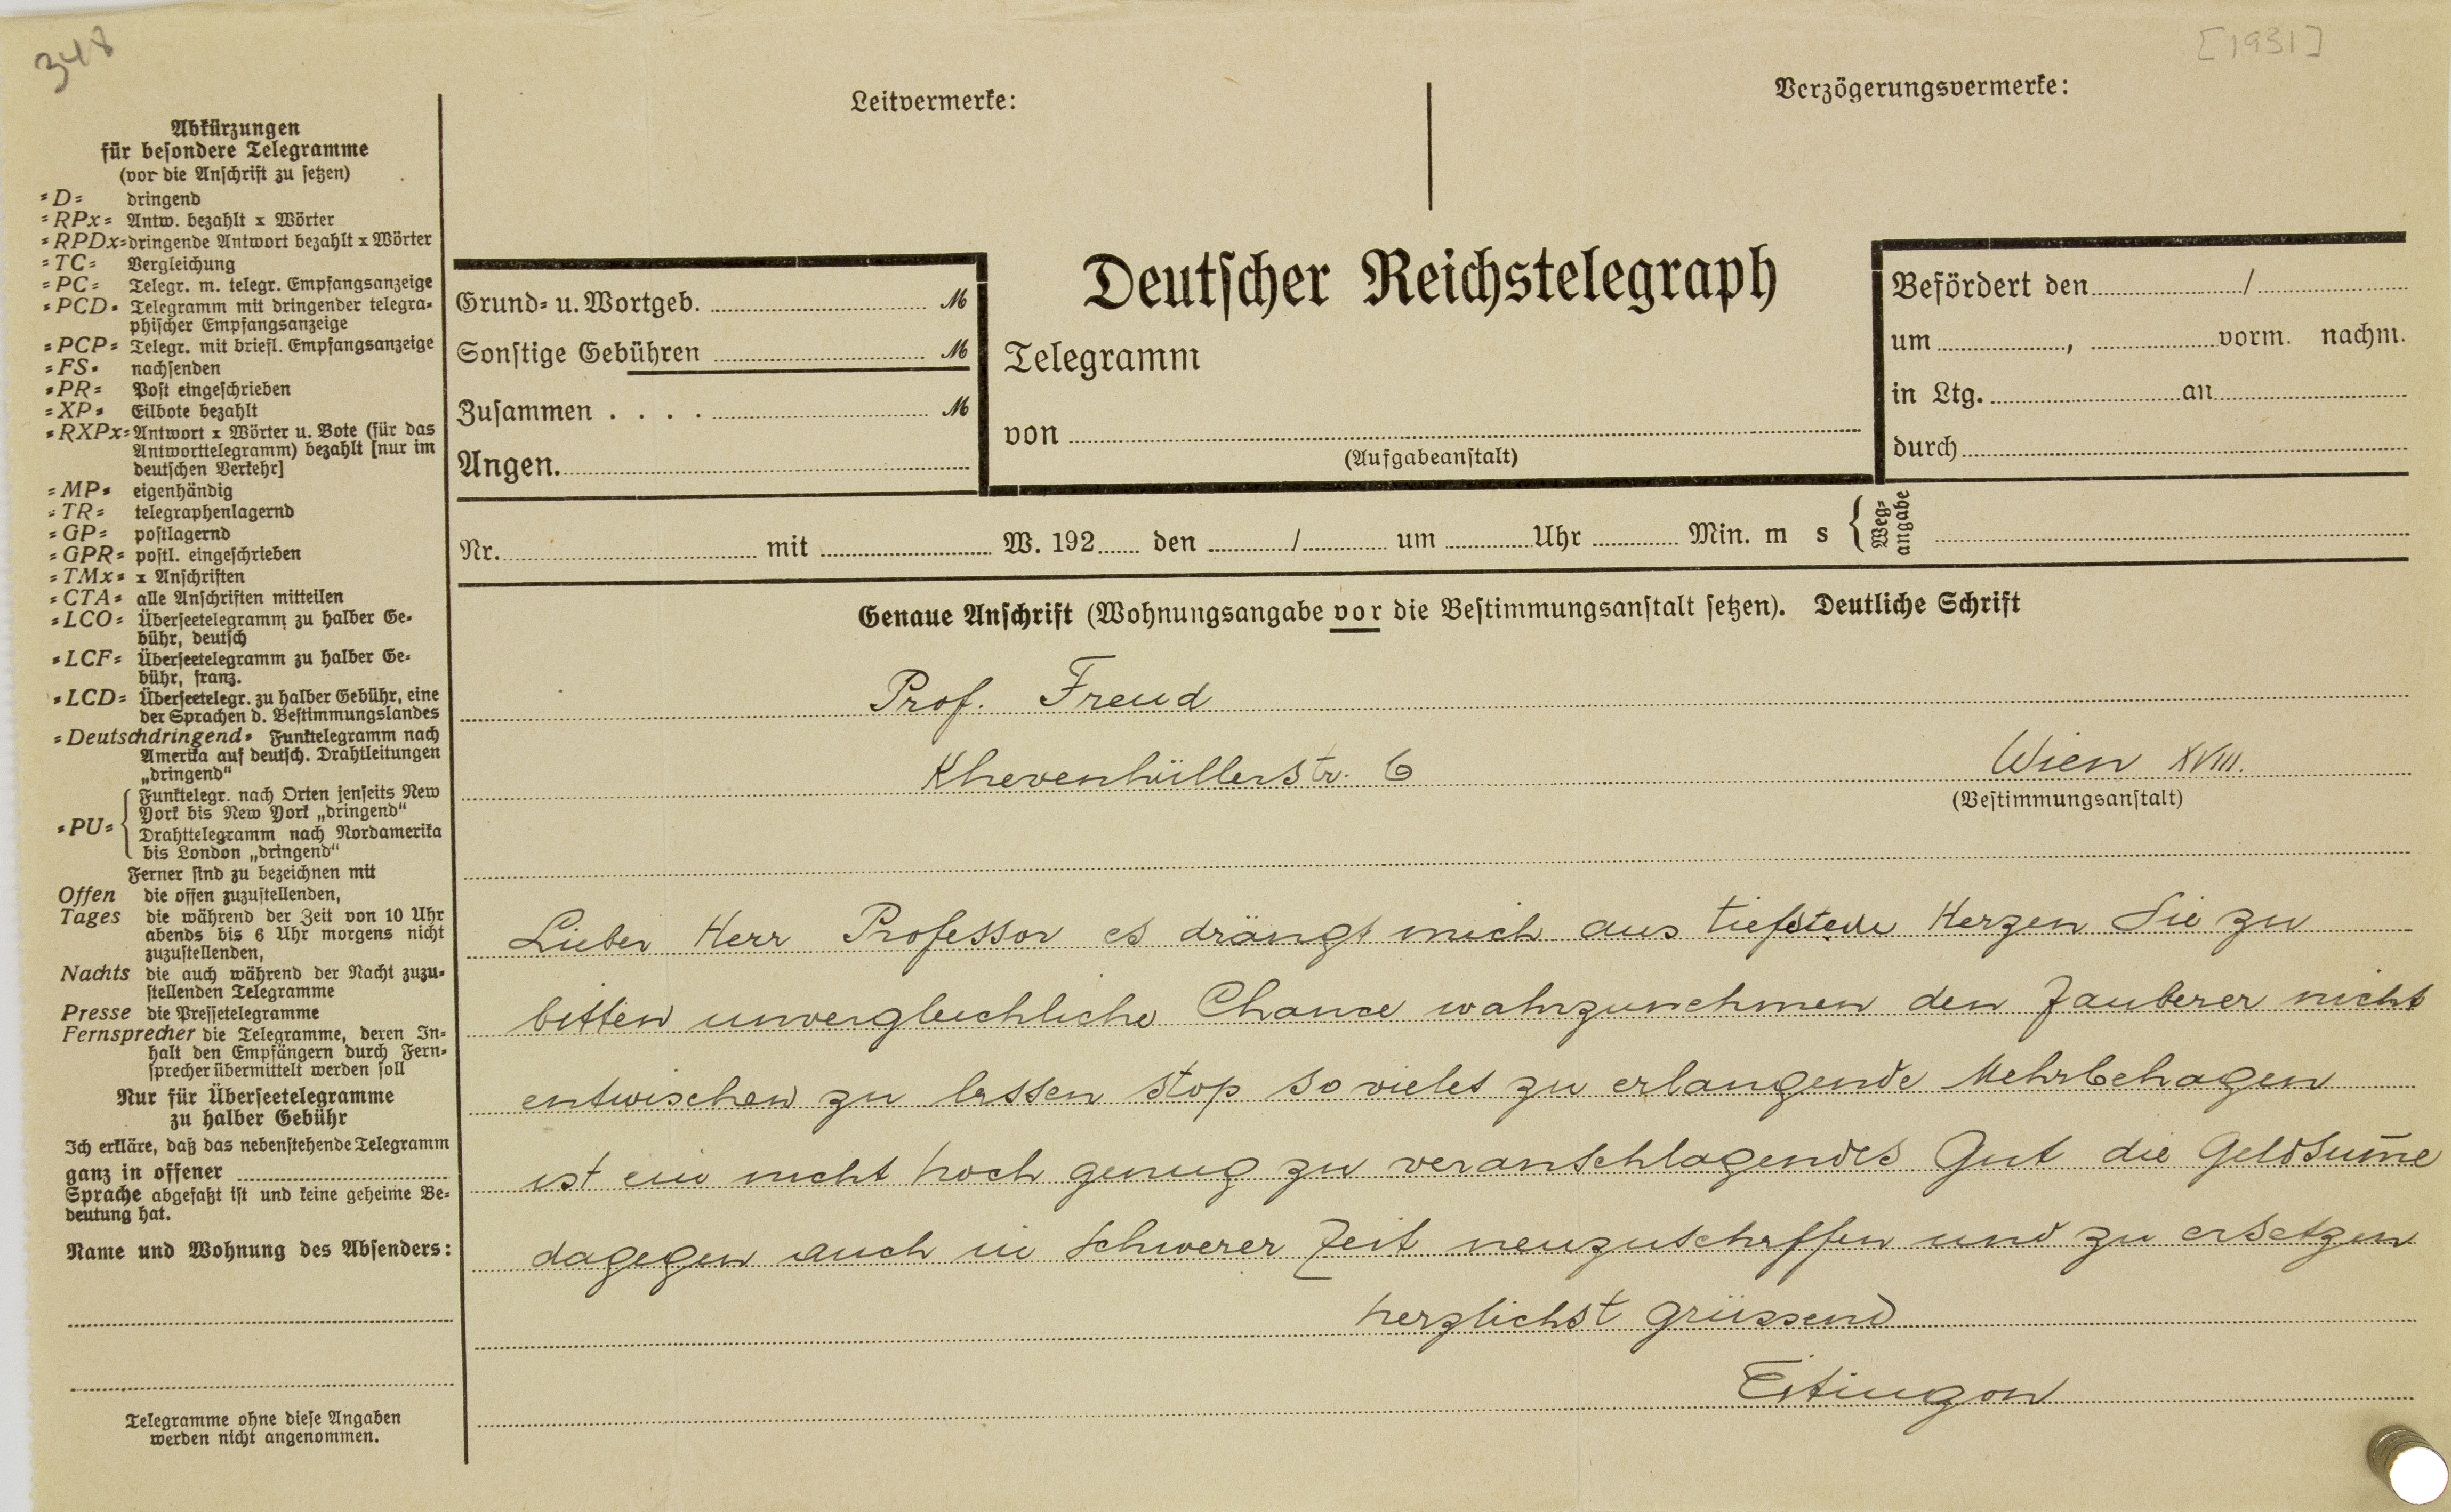 348
[1931]
Leitvermerke:
Verzögerungsvermerke:
Abkürzungen
für besondere Telegramme
(vor die Anschrift zu setzen)
=D= dringend
=RPx= Antw. bezahlt x Wörter
=RPDx= dringende Antwort bezahlt x Wörter
=TC= Vergleichung
=PC= Telegr. m. telegr. Empfangsanzeige
=PCD= Telegramm mit dringender telegra-
phischer Empfangsanzeige
=PCP= Telegr. mit briefl. Empfangsanzeige
=FS= nachsenden
=PR= Post eingeschrieben
=XP= Eilbote bezahlt
=RXPx= Antwort x Wörter u. Bote (für das
Antworttelegramm) bezahlt [nur im
deutschen Verkehr]
=MP= eigenhändig
=TR= telegraphenlagernd
=GP= postlagernd
=GPR= postl. eingeschrieben
=TMx= x Anschriften
=CTA= alle Anschriften mitteilen
=LCO= Überseetelegramm zu halber Ge-
bühr, deutsch
=LCF= Überseetelegramm zu halber Ge-
bühr, franz.
=LCD= Überseetelegr. zu halber Gebühr, eine
der Sprachen d. Bestimmungslandes
=Deutschdringend= Funktelegramm nach
Amerika auf deutsch. Drahtleitungen
„dringend“
=PU= { Funktelegr. nach Orten jenseits New
York bis New York „dringend“
Drahttelegramm nach Nordamerika
bis London „dringend“
Ferner sind zu bezeichnen mit
Offen die offen zuzustellenden,
Tages die während der Zeit von 10 Uhr
abends bis 6 Uhr morgens nicht
zuzustellenden,
Nachts die auch während der Nacht zuzu-
stellenden Telegramme
Presse die Pressetelegramme
Fernsprecher die Telegramme, deren In-
halt den Empfängern durch Fern-
sprecher übermittelt werden soll
Nur für Überseetelegramme
zu halber Gebühr
Ich erkläre, daß das nebenstehende Telegramm
ganz in offener
Sprache abgefaßt ist und keine geheime Be-
deutung hat.
Name und Wohnung des Absenders:
Telegramme ohne diese Angaben
werden nicht angenommen.
Grund- u. Wortgeb. M
Sonstige Gebühren M
Zusammen . . . . M
Angen.
Deutscher Reichstelegraph
Telegramm
von
(Aufgabeanstalt)
Befördert den /
um , vorm. nachm.
in Ltg. an
durch
Nr. mit W. 192 den / um Uhr Min. m s { Weg-
angabe
Genaue Anschrift (Wohnungsangabe vor die Bestimmungsanstalt setzen). Deutliche Schrift
Prof. Freud
Khevenhüllerstr. 6 Wien XVIII.
(Bestimmungsanstalt)
Lieber Herr Professor es drängt mich aus tiefstem Herzen Sie zu
bitten unvergleichliche Chance wahrzunehmen den Zauberer nicht
entwischen zu lassen stop so vieles zu erlangende Mehrbehagen
ist ein nicht hoch genug zu veranschlagendes Gut die Geldsum̄e
dagegen auch in schwerer Zeit neuzuschaffen und zu ersetzen
herzlichst grüssend
Eitingon